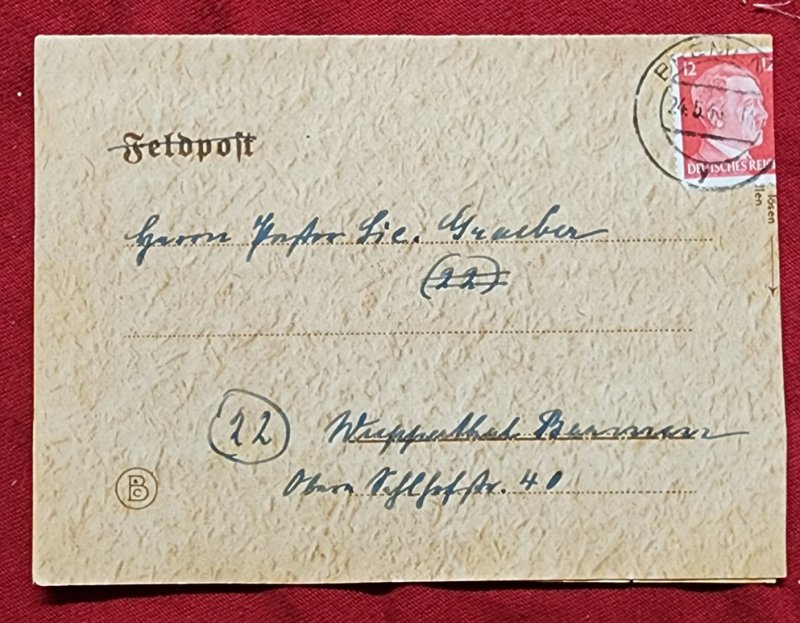 Feldpost
12 12
24.5.44
DEUTSCHES REICH
lösen
Herrn Pastor Lic. Graeber
(22)
22 Wuppertal-Barmen
Obere Sehlhofstr. 40
B